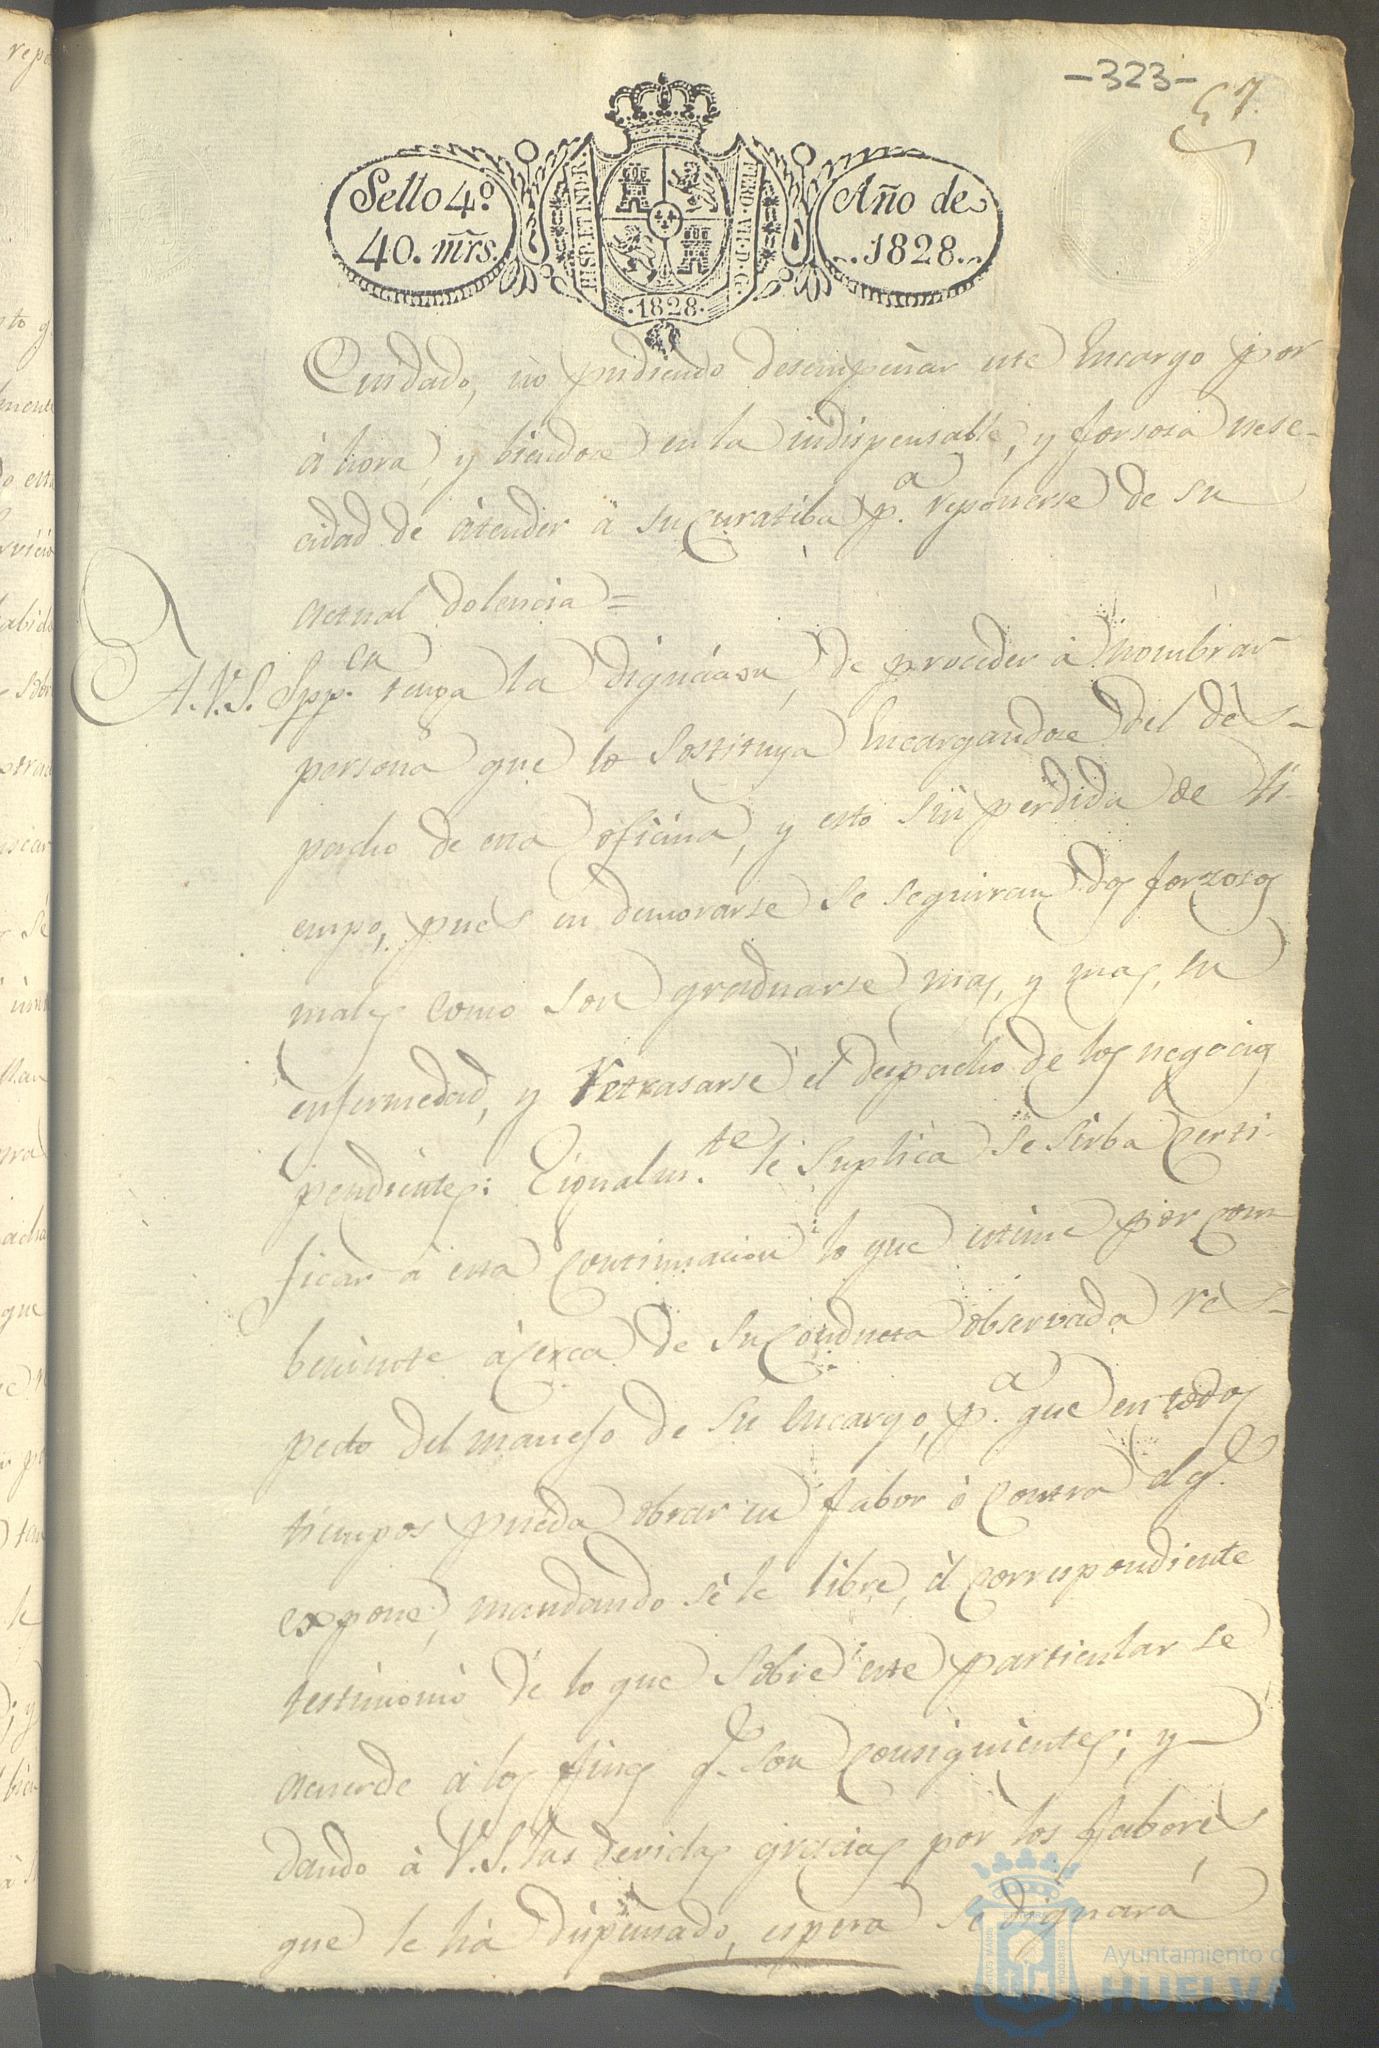 -323-
57.
Sello 4º
40. mrs.
HISP. ET IND. R.
FERD. VII. D. G.
·1828·
Año de
..1828..
Cuidado, no pudiendo desempeñar este Encargo por
àhora, y biendose en la indispensable, y forsosa nese-
cidad de àtender à su Curatiba p.ª reponerse de su
actual dolencia=
A. V. S. Supp.ca tenga la dignacion, de proceder à nombrar
persona que lo sostituya Encargandose del des-
pacho de esta oficina, y esto sin perdida de ti-
empo, pues en demorarse se seguiran dos forzosos
males como son graduarse mas, y mas, su
enfermedad, y retrasarse el despacho de los negocios
pendientes: E igualm.te le suplica se sirba Certi-
ficar à esta Continuacion lo que estime por Com-
beniente àCerca de su Conducta observada res-
pecto del manejo de su Encargo, p.ª que en todos
tiempos pueda obrar en fabor ò Contra el q.e
expone, mandando se le libre, el Correspondiente
testimonio de lo que sobre este particular se
acuerde à los fines q.e son Consiguientes; y
dando à V. S. las devidas gracias por los fabores
que le hà dispensado, espera se dignará
Ayuntamiento de
HUELVA